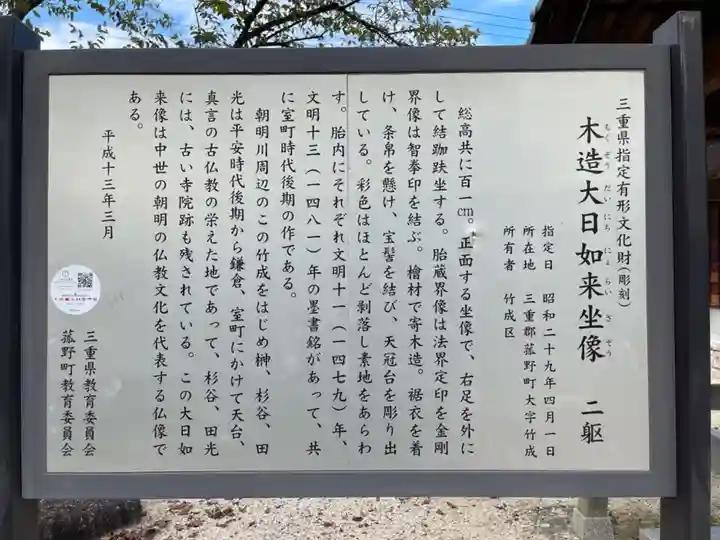 三重県指定有形文化財(彫刻)
木造大日如来坐像 二躯
もくぞうだいにちにょらいざぞう
指定日 昭和二十九年四月一日
所在地 三重郡菰野町大字竹成
所有者 竹成区
総高共に百一㎝。正面する坐像で、右足を外に
して結跏趺坐する。胎蔵界像は法界定印を金剛
界像は智拳印を結ぶ。檜材で寄木造。裾衣を着
け、条帛を懸け、宝髻を結び、天冠台を彫り出
している。彩色はほとんど剥落し素地をあらわ
す。胎内にそれぞれ文明十一(一四七九)年、
文明十三(一四八一)年の墨書銘があって、共
に室町時代後期の作である。
朝明川周辺のこの竹成をはじめ榊、杉谷、田
光は平安時代後期から鎌倉、室町にかけて天台、
真言の古仏教の栄えた地であって、杉谷、田光
には、古い寺院跡も残されている。この大日如
来像は中世の朝明の仏教文化を代表する仏像で
ある。
平成十三年三月
三重県教育委員会
菰野町教育委員会